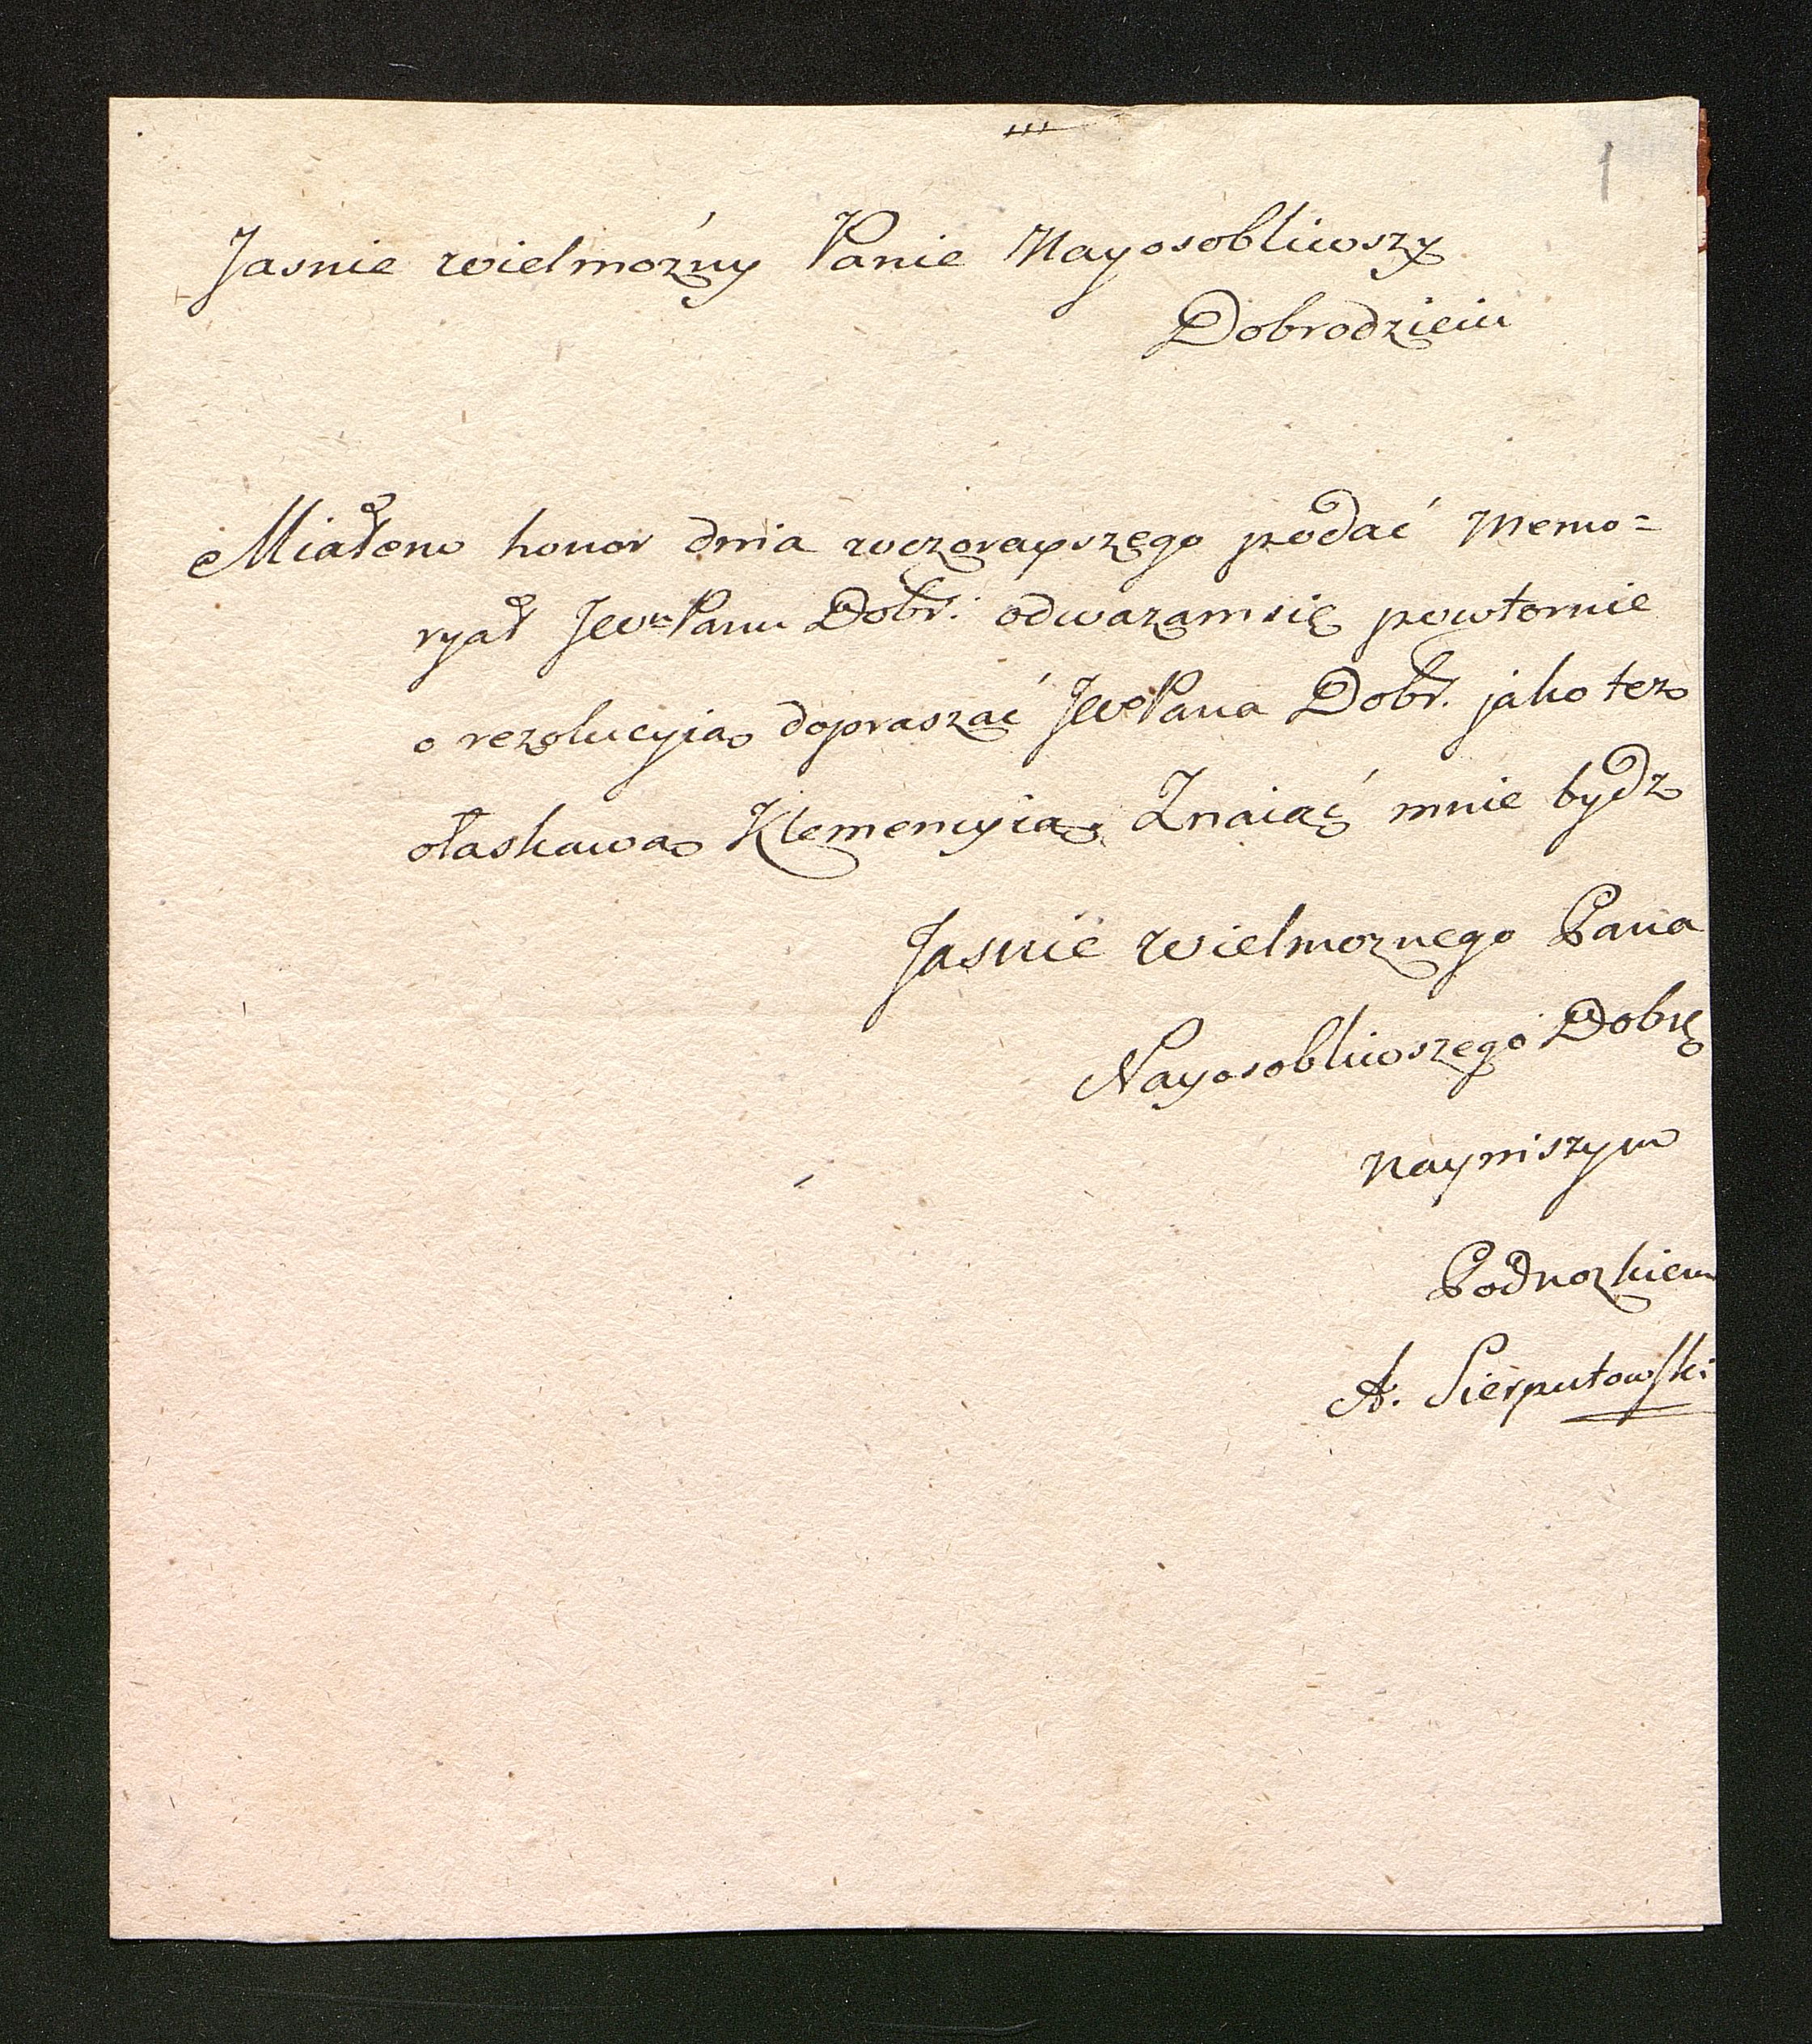 1
Jasnie wielmozny Panie Nayosobliwszy
Dobrodzieiu
Miałem honor dnia wczorayszego podać Memo=
ryał Jww Panu Dobr: odwazam się powtornie
o rezolucyią dopraszać Jww Pana Dobr. jako tez
o łaskawą Klemencyią. Znaiąć mnie bydz
Jasnie wielmoznego Pana
Nayosobliwszego Dobr
nayniszym
Podnozkiem
A. Sierputowski